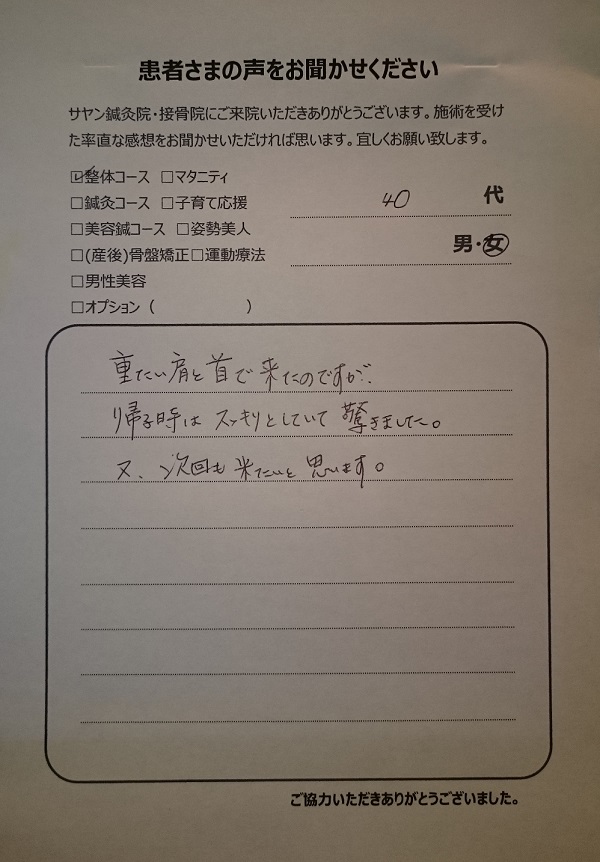 患者さまの声をお聞かせください
サヤン鍼灸院・接骨院にご来院いただきありがとうございます。施術を受け
た率直な感想をお聞かせいただければ思います。宜しくお願い致します。
☑整体コース □マタニティ
□鍼灸コース □子育て応援
40 代
□美容鍼コース □姿勢美人
男・女
□(産後)骨盤矯正□運動療法
□男性美容
□オプション ( )
重たい肩と首で来たのですが、
帰る時はスッキリとしていて驚きました。
又、次回も来たいと思います。
ご協力いただきありがとうございました。